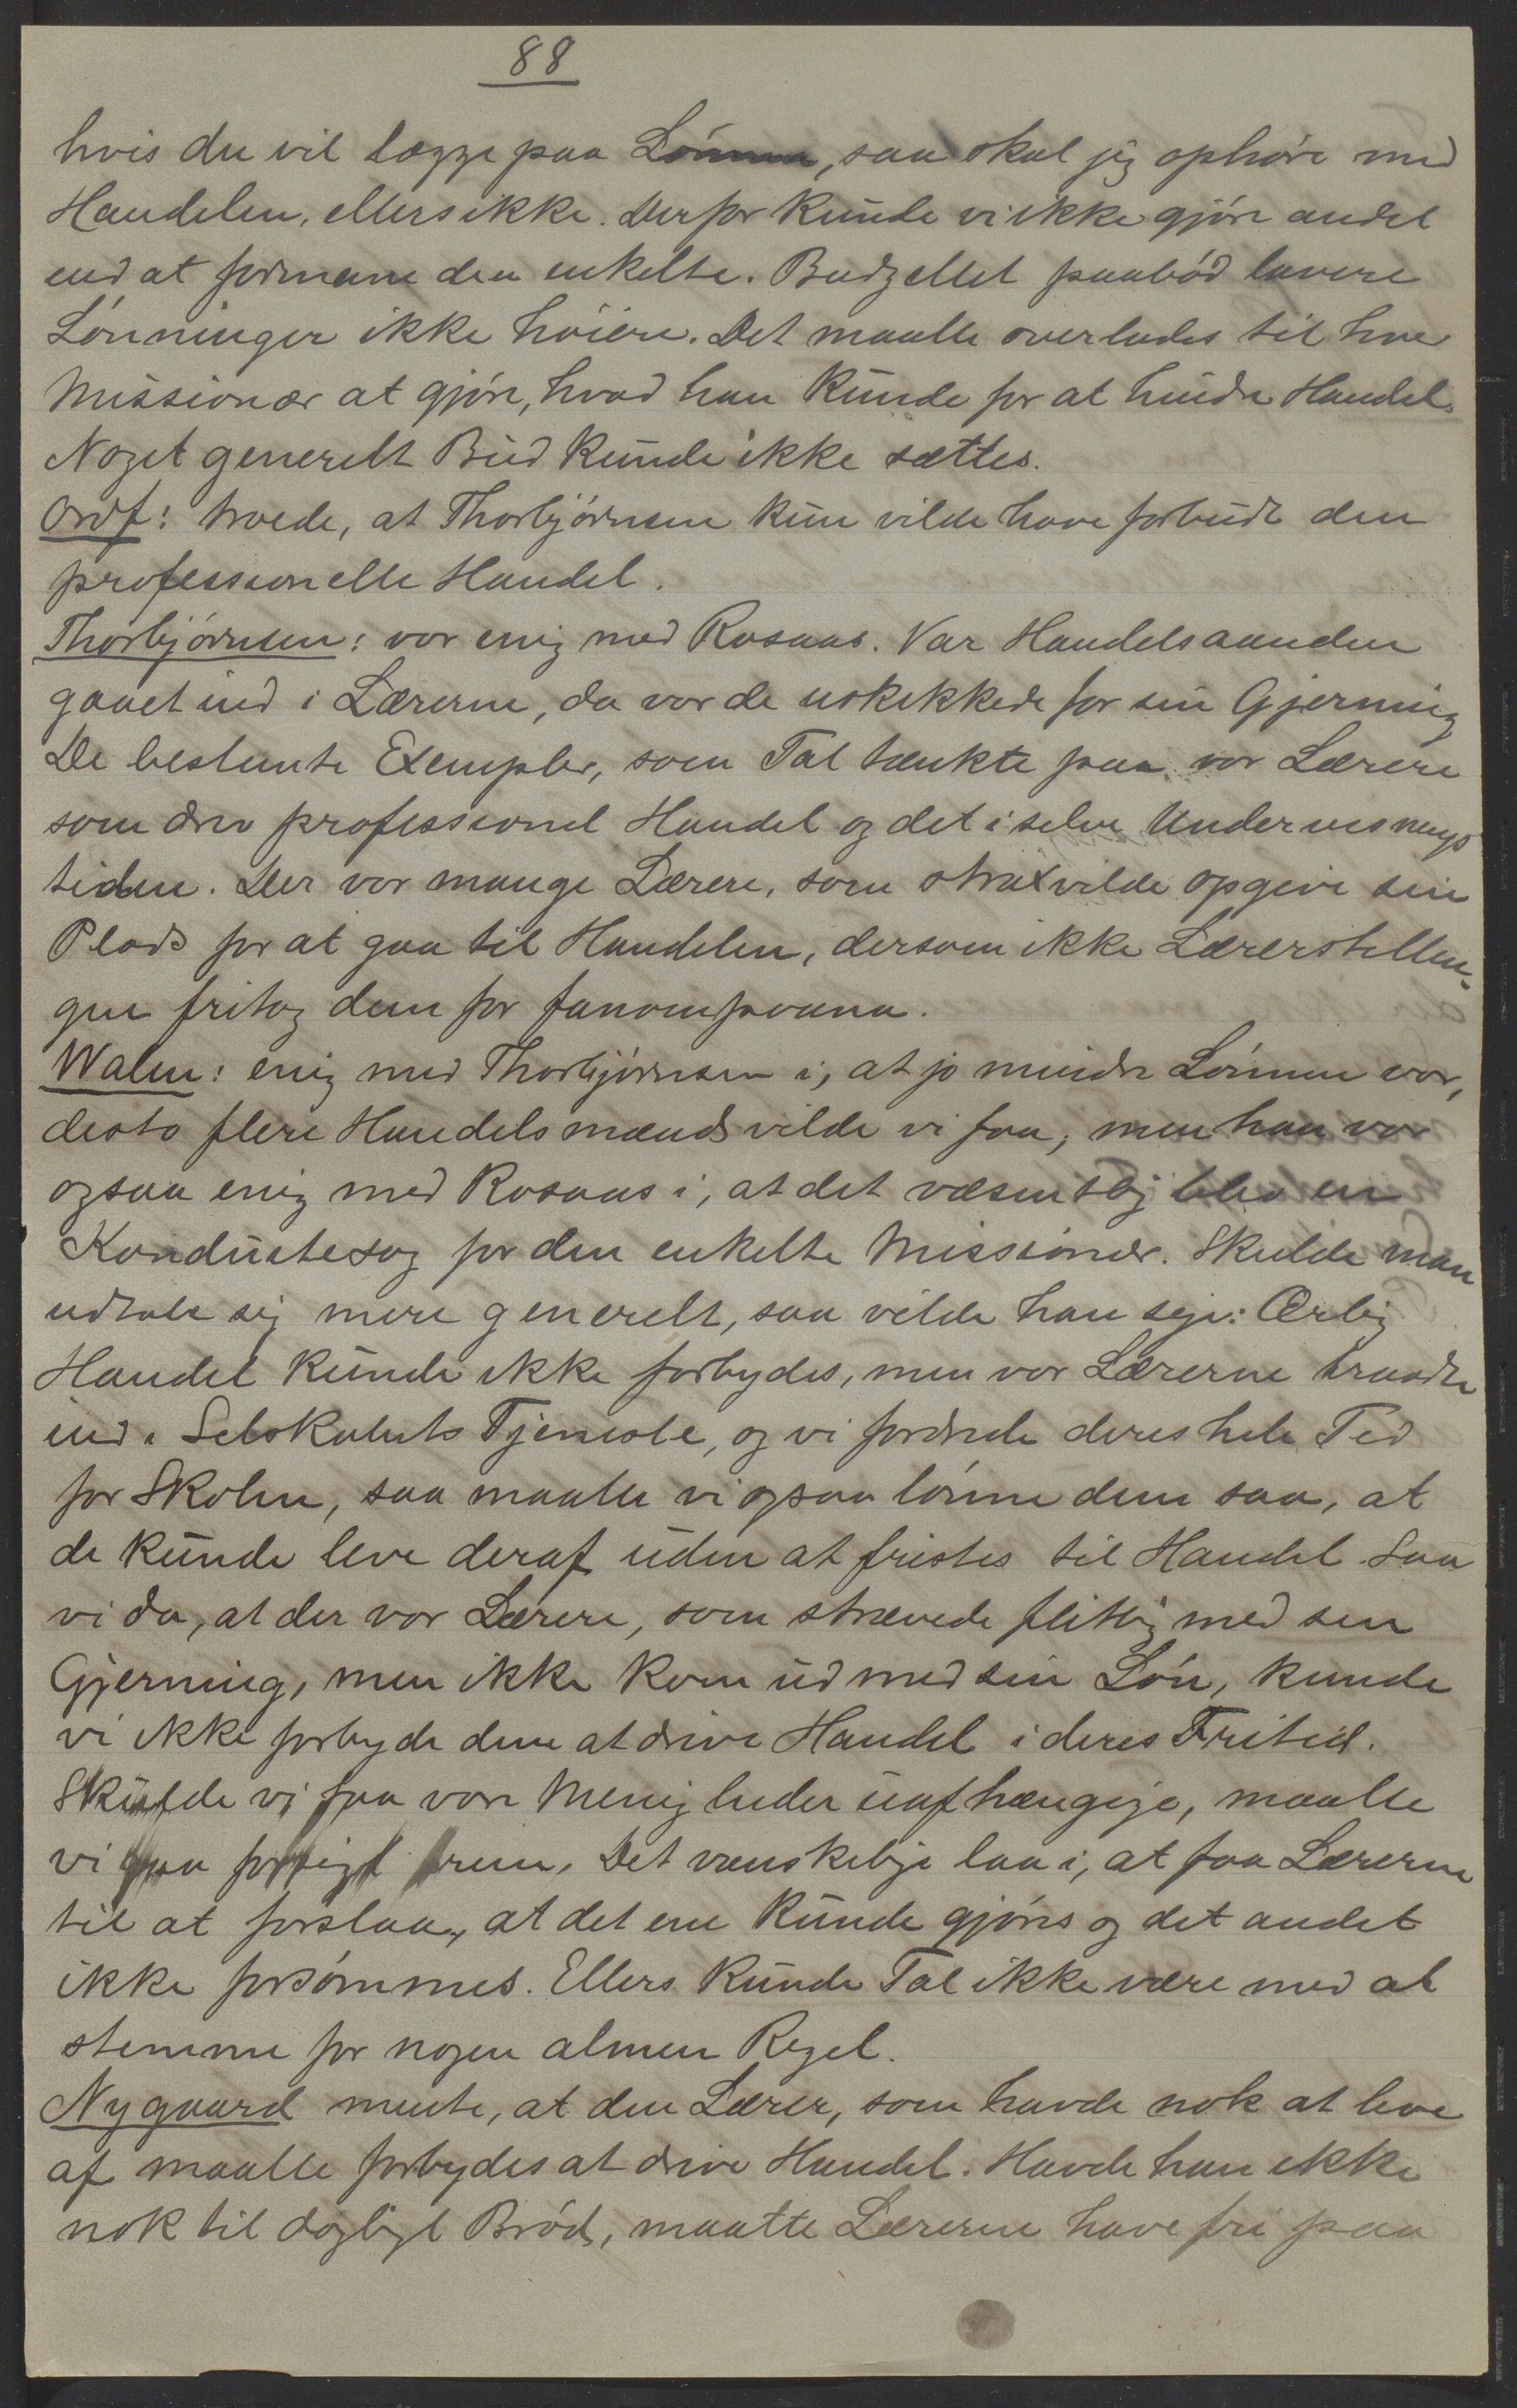 88
hvis du vil lægge paa Lönnen, saa skal jeg ophöre med
Handelen, ellers ikke. Derfor kunde vi ikke gjöre andet
end at formane den enkelte. Budgettet paabód lavere
Lönninger ikke höiere. Det maatte overlades til hver
Missionær at gjöre, hvad han kunde for at hindre Handel.
Noget generelt Bud kunde ikke sættes.
Ordf: troede, at Thorbjörnsen kun vilde have forbudt den
professionelle Handel.
Thorbjörnsen: var enig med Rosaas. Var Handelsaanden
gaaet ind i Lærerne, da var de uskikkede for sin Gjerning
De bestemte Exempler, som Tal tænkte paa, var Lærere
som drev professionel Handel og det i selve Undervisnings
tiden. Der var mange Lærere, som strax vilde opgive sin
Plads for at gaa til Handelen, dersom ikke Lærerstillin-
gen fritog dem for fanompoana.
Walen: enig med Thorbjörnsen i, at jo mindre Lönnen var,
desto flere Handelsmænd vilde vi faa, men han var
ogsaa enig med Rosaas i, at det væsentlig blev en
Konduitesag for den enkelte Missionær. Skulde man
udtale sig mere generelt, saa vilde han sige: Ærlig
Handel kunde ikke forbydes, men var Lærerne traadte
ind i Selskabets Tjeneste, og vi fordrede deres hele Tid
for Skolen, saa maatte vi ogsaa lönne dem saa, at
de kunde leve deraf uden at fristes til Handel. Saa
vi da, at der var Lærere, som strævede flittig med sin
Gjerning, men ikke kom ud med sin Lön, kunde
vi ikke forbyde dem at drive Handel i deres Fritid.
Skulde vi faa vore Menigheder uafhængige, maatte
vi gaa forsigt frem. Det vanskelige laa i, at faa Lærerne
til at forstaa, at det ene kunde gjöres og det andet
ikke forsömmes. Ellers kunde Tal ikke være med at
stemme for nogen almen Regel.
Nygaard mente, at den Lærer, som havde nok at leve
af maatte forbydes at drive Handel. Havde han ikke
nok til dagligt Bröd, maatte Lærerne have fri paa